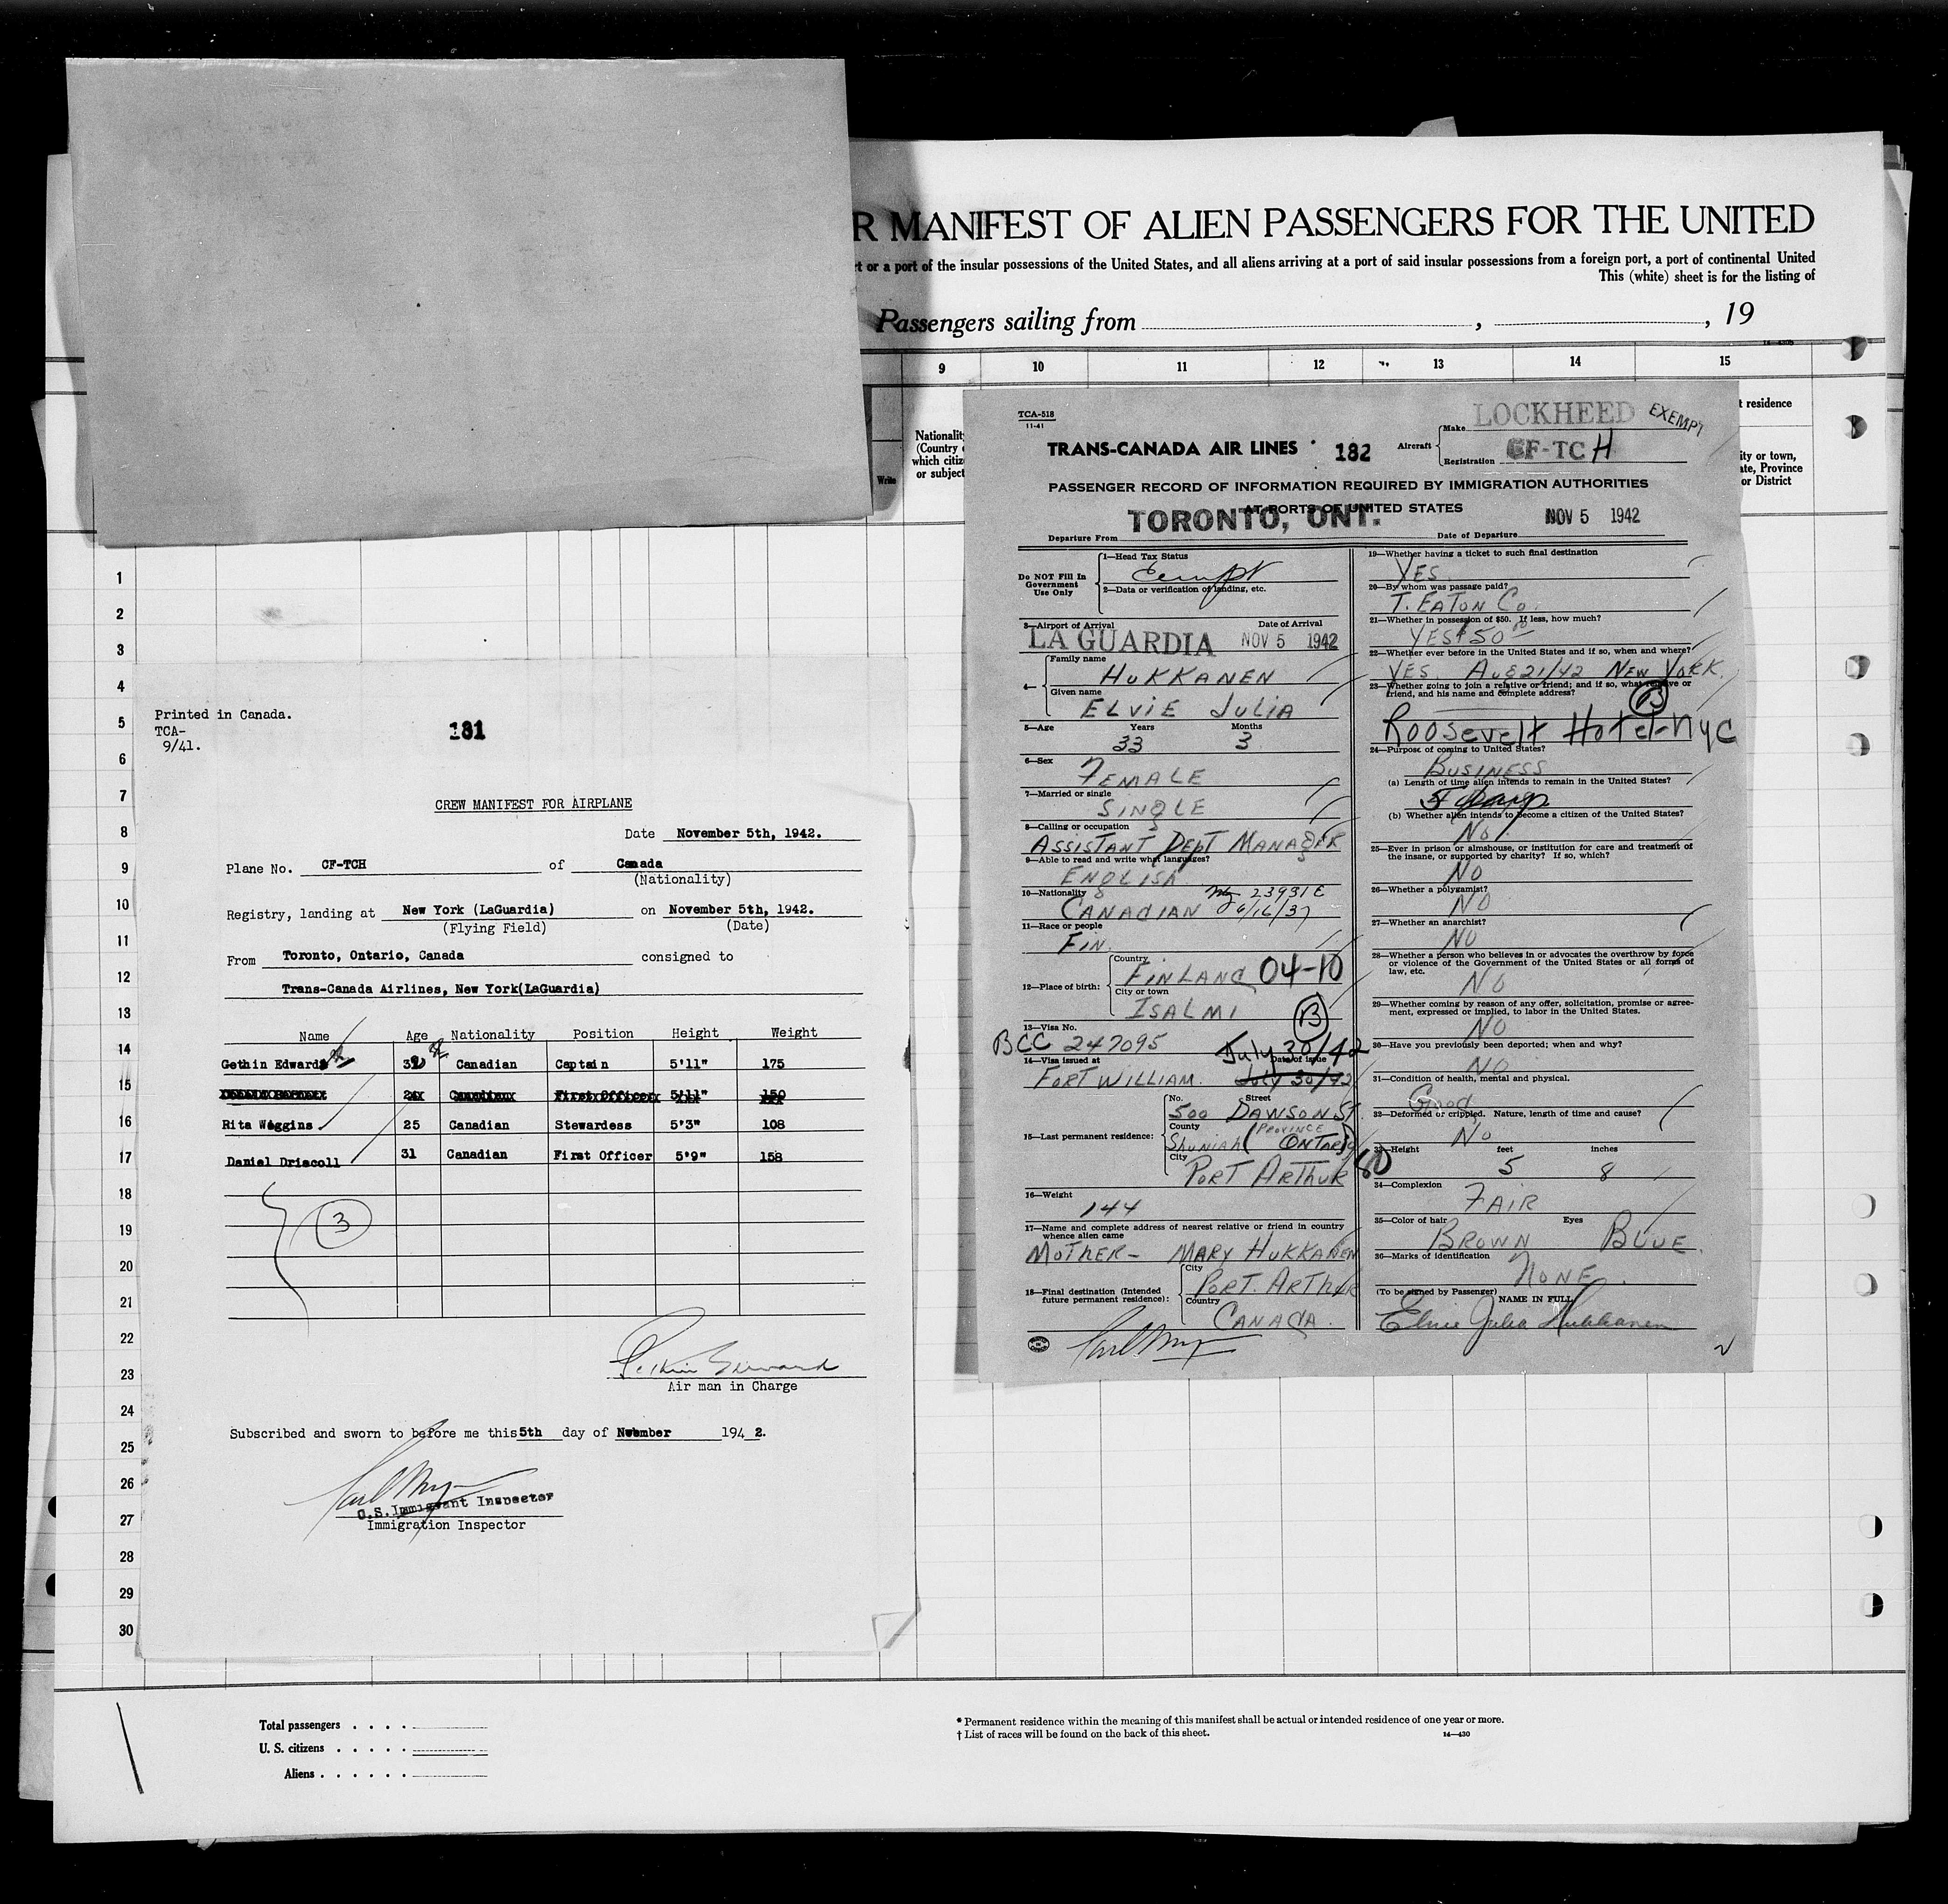 R MANIFEST OF ALIEN PASSENGERS FOR THE UNITED
rt or a port of the insular possessions of the United States, and all aliens arriving at a port of said insular possessions from a foreign port, a port of continental United
This (white) sheet is for the listing of
Passengers sailing from , , 19
9 10 11 12 13 14 15
Nationality
(Country
which citiz
or subject
Write
t residence
ity or town,
ate, Province
or District
1
2
3
4
5
6
7
8
9
10
11
12
13
14
15
16
17
18
19
20
21
22
23
24
25
26
27
28
29
30
Printed in Canada.
TCA-
9/41.
181
CREW MANIFEST FOR AIRPLANE
Date November 5th, 1942.
Plane No. CF-TCH of Canada
(Nationality)
Registry, landing at New York (LaGuardia) on November 5th, 1942.
(Flying Field) (Date)
From Toronto, Ontario, Canada consigned to
Trans-Canada Airlines, New York(LaGuardia)
Name Age Nationality Position Height Weight
Gethin Edwards Canadian Captain 5'11" 175
Canadian First Officer 5'11" 150
Rita Wiggins 25 Canadian Stewardess 5'3" 108
Daniel Driscoll 31 Canadian First Officer 5'9" 158
3
Air man in Charge
Subscribed and sworn to before me this 5th day of November 194 2.
U.S. Immigrant Inspector
Immigration Inspector
TCA-518
11-41
TRANS-CANADA AIR LINES 182
Aircraft Make LOCKHEED EXEMPT
Registration CF-TCH
PASSENGER RECORD OF INFORMATION REQUIRED BY IMMIGRATION AUTHORITIES
AT PORTS OF UNITED STATES
Departure From TORONTO, ONT. Date of Departure NOV 5 1942
Do NOT Fill In
Government
Use Only
1—Head Tax Status
Exempt
2—Data or verification of landing, etc.
3—Airport of Arrival Date of Arrival
LA GUARDIA NOV 5 1942
4—
Family name
HUKKANEN
Given name
ELVIE JULIA
5—Age Years Months
33 3
6—Sex
FEMALE
7—Married or single
SINGLE
8—Calling or occupation
ASSISTANT DEPT MANAGER
9—Able to read and write what languages?
ENGLISH
10—Nationality
CANADIAN 23931E
6/16/37
11—Race or people
FIN.
12—Place of birth:
Country
FINLAND 04-10
City or town
ISALMI
B
13—Visa No.
BCC 247095 July 30/42
14—Visa issued at Date of issue
FORT WILLIAM. July 30/42
15—Last permanent residence:
No. Street
500 DAWSON ST.
County
Shuniah (PROVINCE ONTARIO)
City
PORT ARTHUR
16—Weight
144
17—Name and complete address of nearest relative or friend in country
whence alien came
MOTHER - MARY HUKKANEN
18—Final destination (Intended
future permanent residence):
City
PORT. ARTHUR
Country
CANADA.
19—Whether having a ticket to such final destination
YES
20—By whom was passage paid?
T. EATON Co.
21—Whether in possession of $50. If less, how much?
YES $50
22—Whether ever before in the United States and if so, when and where?
YES Aug 21/42 NEW YORK.
23—Whether going to join a relative or friend; and if so, what relative or
friend, and his name and complete address?
B
Roosevelt Hotel-NYC
24—Purpose of coming to United States?
BUSINESS
(a) Length of time alien intends to remain in the United States?
days
(b) Whether alien intends to become a citizen of the United States?
No
25—Ever in prison or almshouse, or institution for care and treatment of
the insane, or supported by charity? If so, which?
NO
26—Whether a polygamist?
NO
27—Whether an anarchist?
NO
28—Whether a person who believes in or advocates the overthrow by force
or violence of the Government of the United States or all forms of
law, etc.
NO
29—Whether coming by reason of any offer, solicitation, promise or agree-
ment, expressed or implied, to labor in the United States.
NO
30—Have you previously been deported; when and why?
NO
31—Condition of health, mental and physical.
Good
32—Deformed or crippled. Nature, length of time and cause?
No
33—Height feet inches
5 8
34—Complexion
FAIR
35—Color of hair Eyes
BROWN BLUE.
36—Marks of identification
NONE.
(To be signed by Passenger) NAME IN FULL
Elvie Julia Hukkanen
Total passengers . . . .
U. S. citizens . . . . .
Aliens . . . . . .
* Permanent residence within the meaning of this manifest shall be actual or intended residence of one year or more.
† List of races will be found on the back of this sheet. 14—430